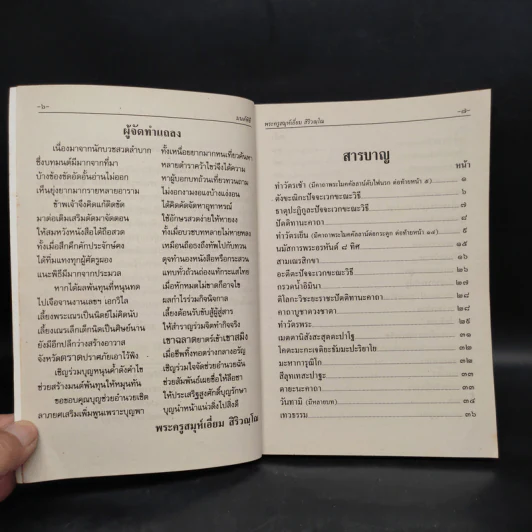 -๖-
มนต์พิธี
ผู้จัดทำแถลง
เนื่องมาจากนักบวชสวดลำบาก
ทั้งเหนื่อยยากมากหนเที่ยวค้นหา
ซึ่งบทมนต์มีมากจากที่มา
หลายตำราคว้าไขว่จึงได้ความ
บ้างข้องขัดอัดอั้นอ่านไม่ออก
หาผู้บอกบทถ้วนเที่ยวทวนถาม
เห็นยุ่งยากมากรายหลายอาราม
ไม่งอกงามงอแงง้างแง่งอน
ข้าพเจ้าจึงคิดแก้ติดขัด
ได้คิดคัดจัดหาอุทาหรณ์
มาต่อเติมเสริมตัดมาจัดตอน
ใช้อักษรลวดง่ายให้หายงง
ให้สมหวังหนังสือได้ถือสวด
ทั้งเมื่อบวชบทหลายไม่หายหลง
ทั้งเมื่อสึกตึกตักประจักษ์คง
เหมือนถือธงถึงทัพไปกับทวน
ได้ที่แทงทุกผู้ศัตรูมอง
ดุจทำนองหนังสือหรือกระสวน
แนะพิธีมีมากจากประมวล
แทบทั่วถ้วนถ่องแท้กระแสไทย
หากได้ผลพ้นทุนที่หนุนทด
เมื่อทักหมดไม่ขาดก็อาจไข
ไปเจือจานงานเลขฯ เอกวิไล
ผลกำไรร่วมกิจนิจกาล
เลี้ยงพระเณรเป็นนิตย์ไม่คิดนับ
เลี้ยงต้อนรับขับสู้ผู้สู่สาร
เลี้ยงเณรเล็กเด็กนิตเป็นศิษย์นาน
ให้สำราญร่วมจิตทำกิจจริง
ยังมีอีกปลีกว่างสร้างอาวาส
เขาฉลาดยาตร์เข้าเขาสมิง
จังหวัดตราดปราศภัยเอาไว้พิง
เมื่อชีพทิ้งทอดว่างกลางอรัญ
เชิญร่วมบุญหนุนค้ำดังคำไข
เชิญร่วมใจจัดช่วยอำนวยฉัน
ช่วยสร้างมนต์พ้นทุนให้หมุนทัน
ช่วยสัมพันธ์เผยชื่อให้ลือชา
ขอขอบคุณบุญช่วยอำนวยเชิด
ให้ประเสริฐสูงศักดิ์บุญรักษา
ลาภยศเสริมเพิ่มพูนเพราะบุญพา
บุญนำหน้าแน่วดิ่งไปสิ่งดี
พระครูสมุห์เอี่ยม สิริวณฺโณ
พระครูสมุห์เอี่ยม สิริวณฺโณ
-๗-
สารบาญ
หน้า
ทำวัตรเช้า (มีคาถาพระโมคคัลลาน์ดับไฟนรก ต่อท้ายหน้า ๕) ๑
ตังขะณิกะปัจจะเวกขะณะวิธี ๖
ธาตุปะฏิกูละปัจจะเวกขะณะวิธี ๗
ปัตติทานะคาถา ๘
ทำวัตรเย็น (มีคาถาพระโมคคัลลาน์ต่อกระดูก ต่อท้ายหน้า ๑๔) ๙
นมัสการพระอรหันต์ ๘ ทิศ ๑๕
สามเณรสิกขา ๑๕
อะตีตะปัจจะเวกขะณะวิธี ๒๖
กรวดน้ำอิมินา ๒๗
ติโลกะวิชะยะราชะปัตติทานะคาถา ๒๘
คาถาบูชาดวงชาตา ๒๘
ทำวัตรพระ ๒๕
เมตตานิสังสะสุตตะปาฐะ ๓๐
โคตะมะกะเจติยะธัมมะปะริยาย ๓๑
มะหาการุณิโก ๓๒
สีลุทเทสะปาฐะ ๓๒
ตายะนะคาถา ๓๓
วันทามิ (มีหลายบท) ๓๔
เทวธรรม ๓๖